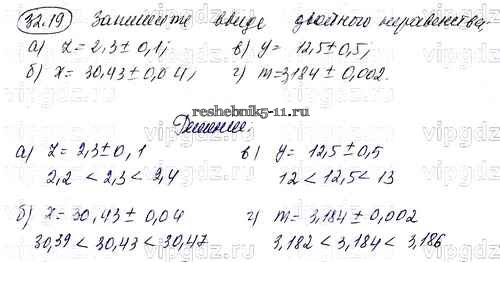 32.19 Запишите в виде двойного неравенства:
а) z = 2,3 ± 0,1; в) y = 12,5 ± 0,5;
б) x = 30,43 ± 0,04; г) m = 3,184 ± 0,002.
reshebnik5-11.ru
Решение.
а) z = 2,3 ± 0,1 в) y = 12,5 ± 0,5
2,2 < 2,3 < 2,4 12 < 12,5 < 13
б) x = 30,43 ± 0,04 г) m = 3,184 ± 0,002
30,39 < 30,43 < 30,47 3,182 < 3,184 < 3,186